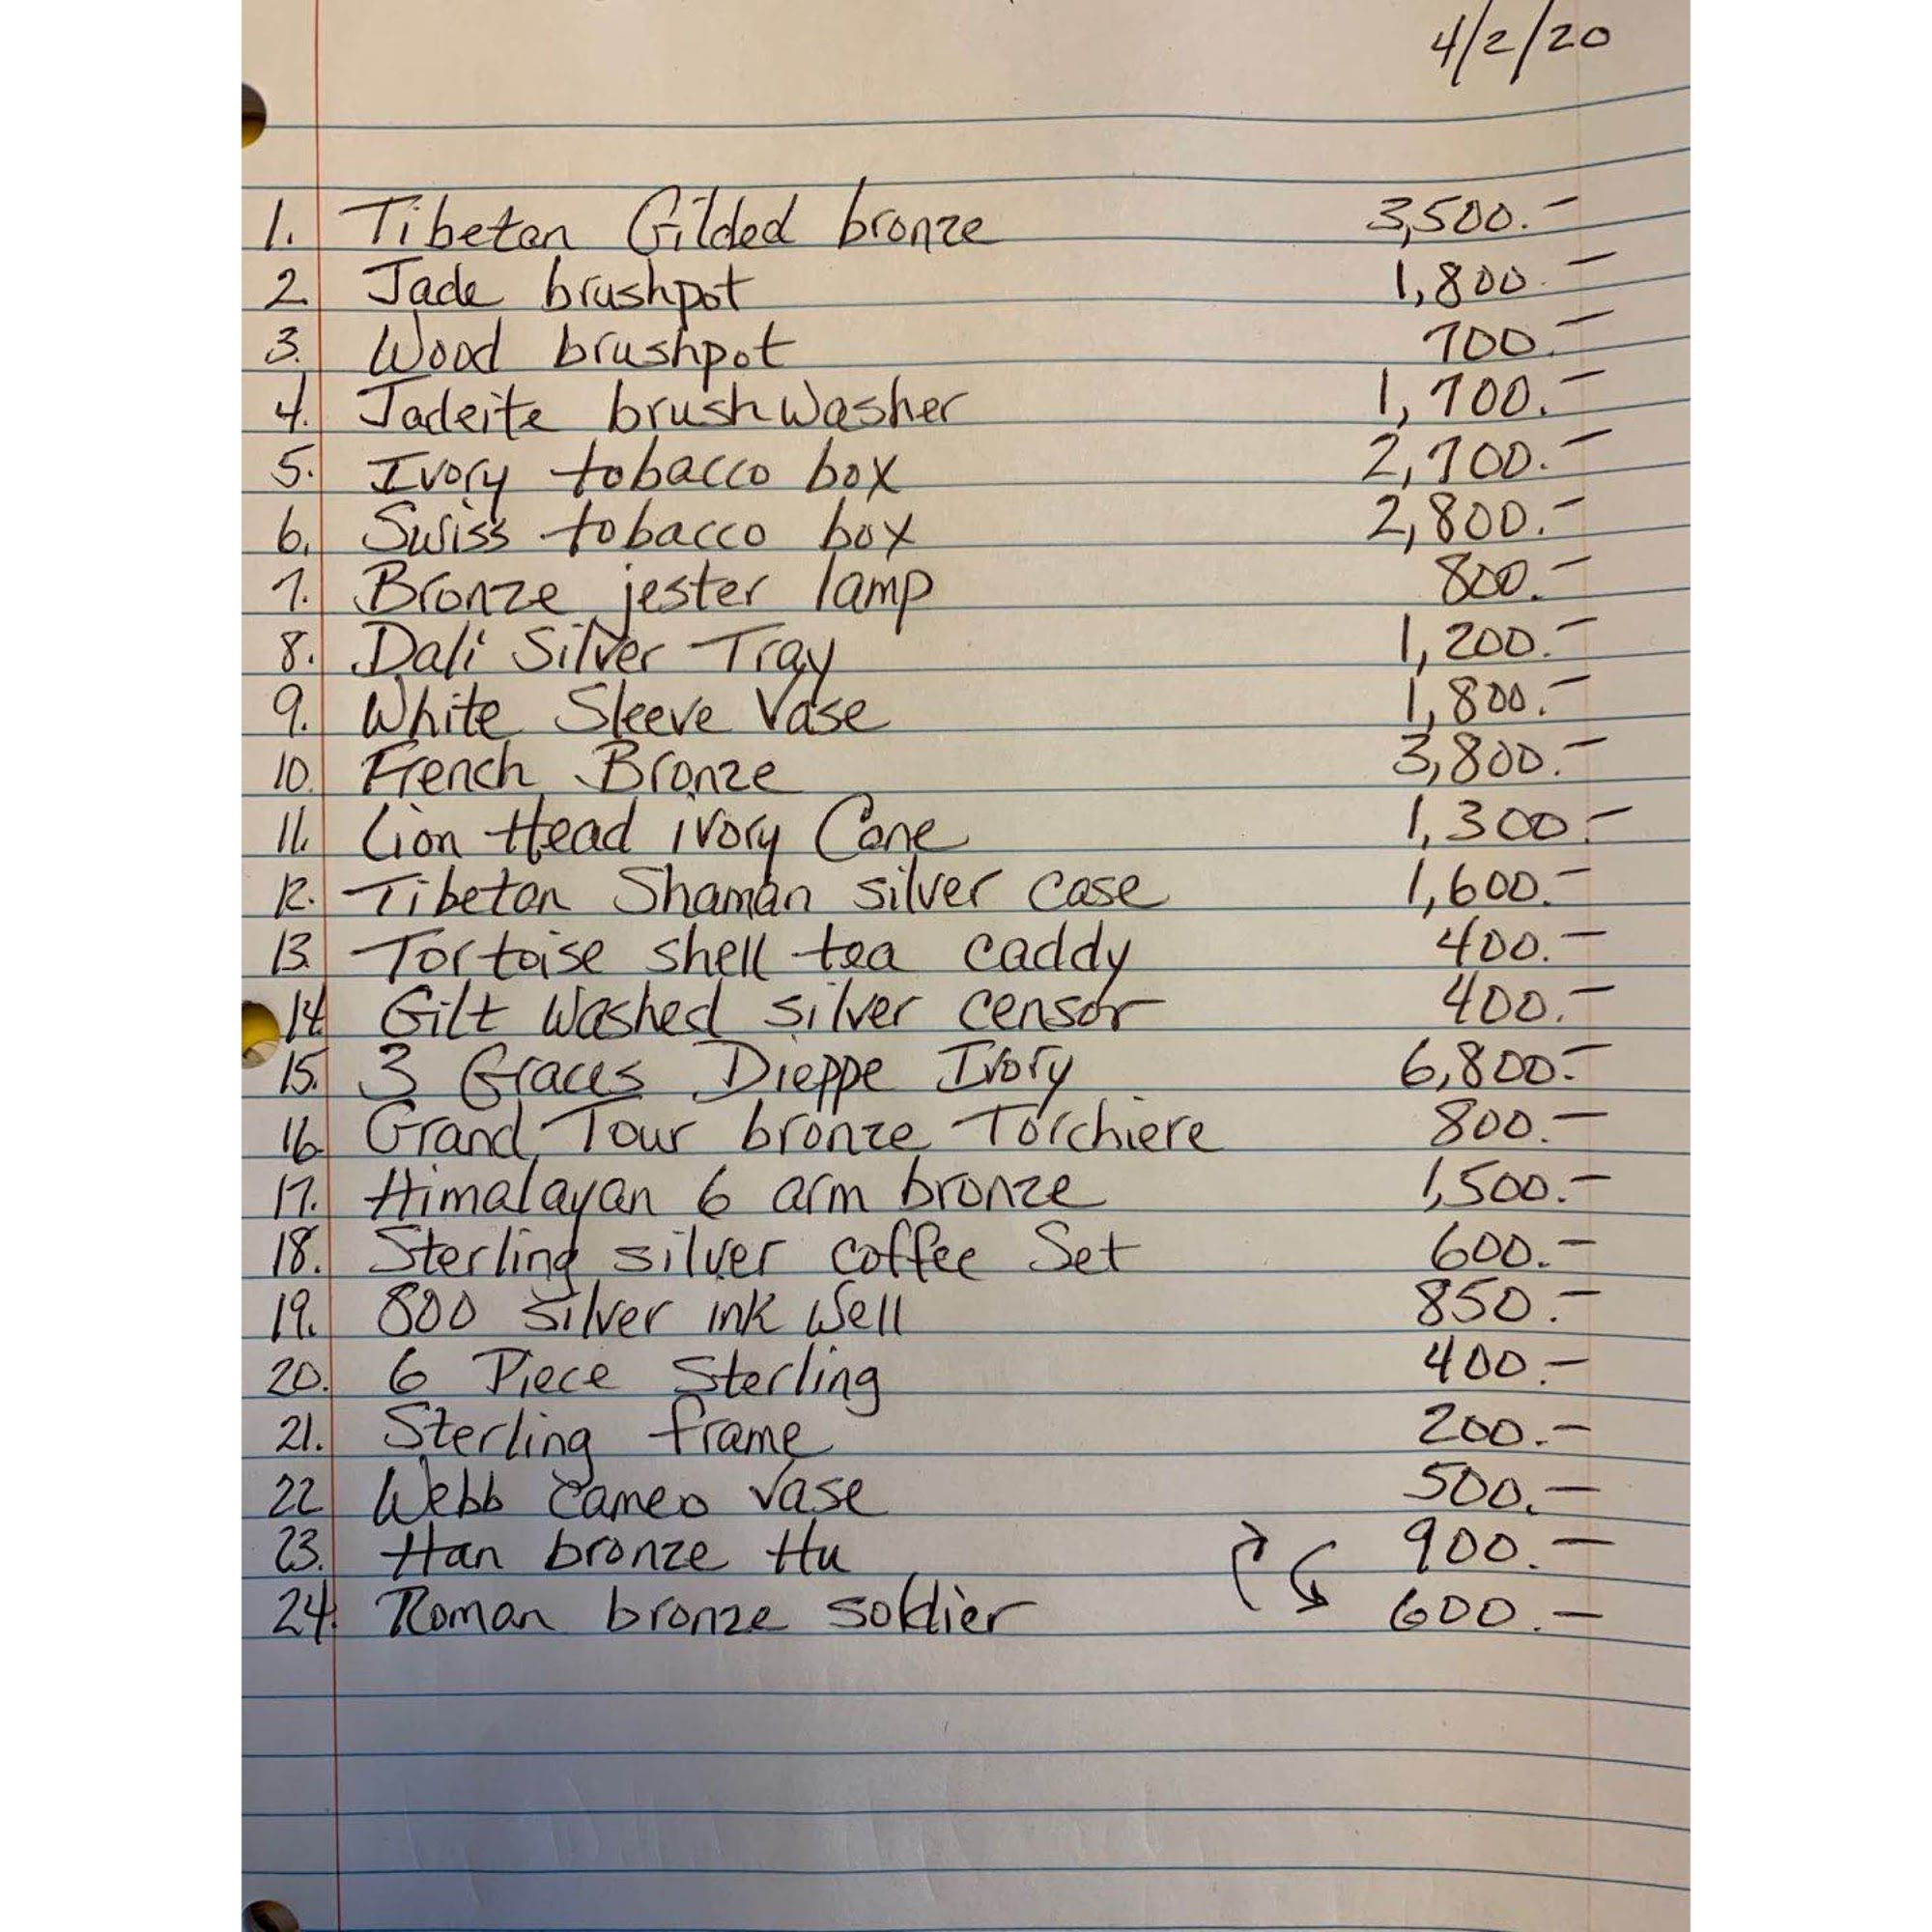 4/2/20
1. Tibetan Gilded bronze 3,500.-
2. Jade brushpot 1,800.-
3. Wood brushpot 700.-
4. Jadeite brush Washer 1,700.-
5. Ivory tobacco box 2,700.-
6. Swiss tobacco box 2,800.-
7. Bronze jester lamp 800.-
8. Dali Silver Tray 1,200.-
9. White Sleeve Vase 1,800.-
10. French Bronze 3,800.-
11. Lion Head ivory Cane 1,300.-
12. Tibetan Shaman silver case 1,600.-
13. Tortoise shell tea caddy 400.-
14. Gilt Washed silver censor 400.-
15. 3 Graces Dieppe Ivory 6,800.-
16. Grand Tour bronze Torchiere 800.-
17. Himalayan 6 arm bronze 1,500.-
18. Sterling silver coffee Set 600.-
19. 800 silver ink Well 850.-
20. 6 Piece Sterling 400.-
21. Sterling frame 200.-
22 Webb cameo vase 500.-
23. Han bronze Hu 900.-
24. Roman bronze soldier 600.-